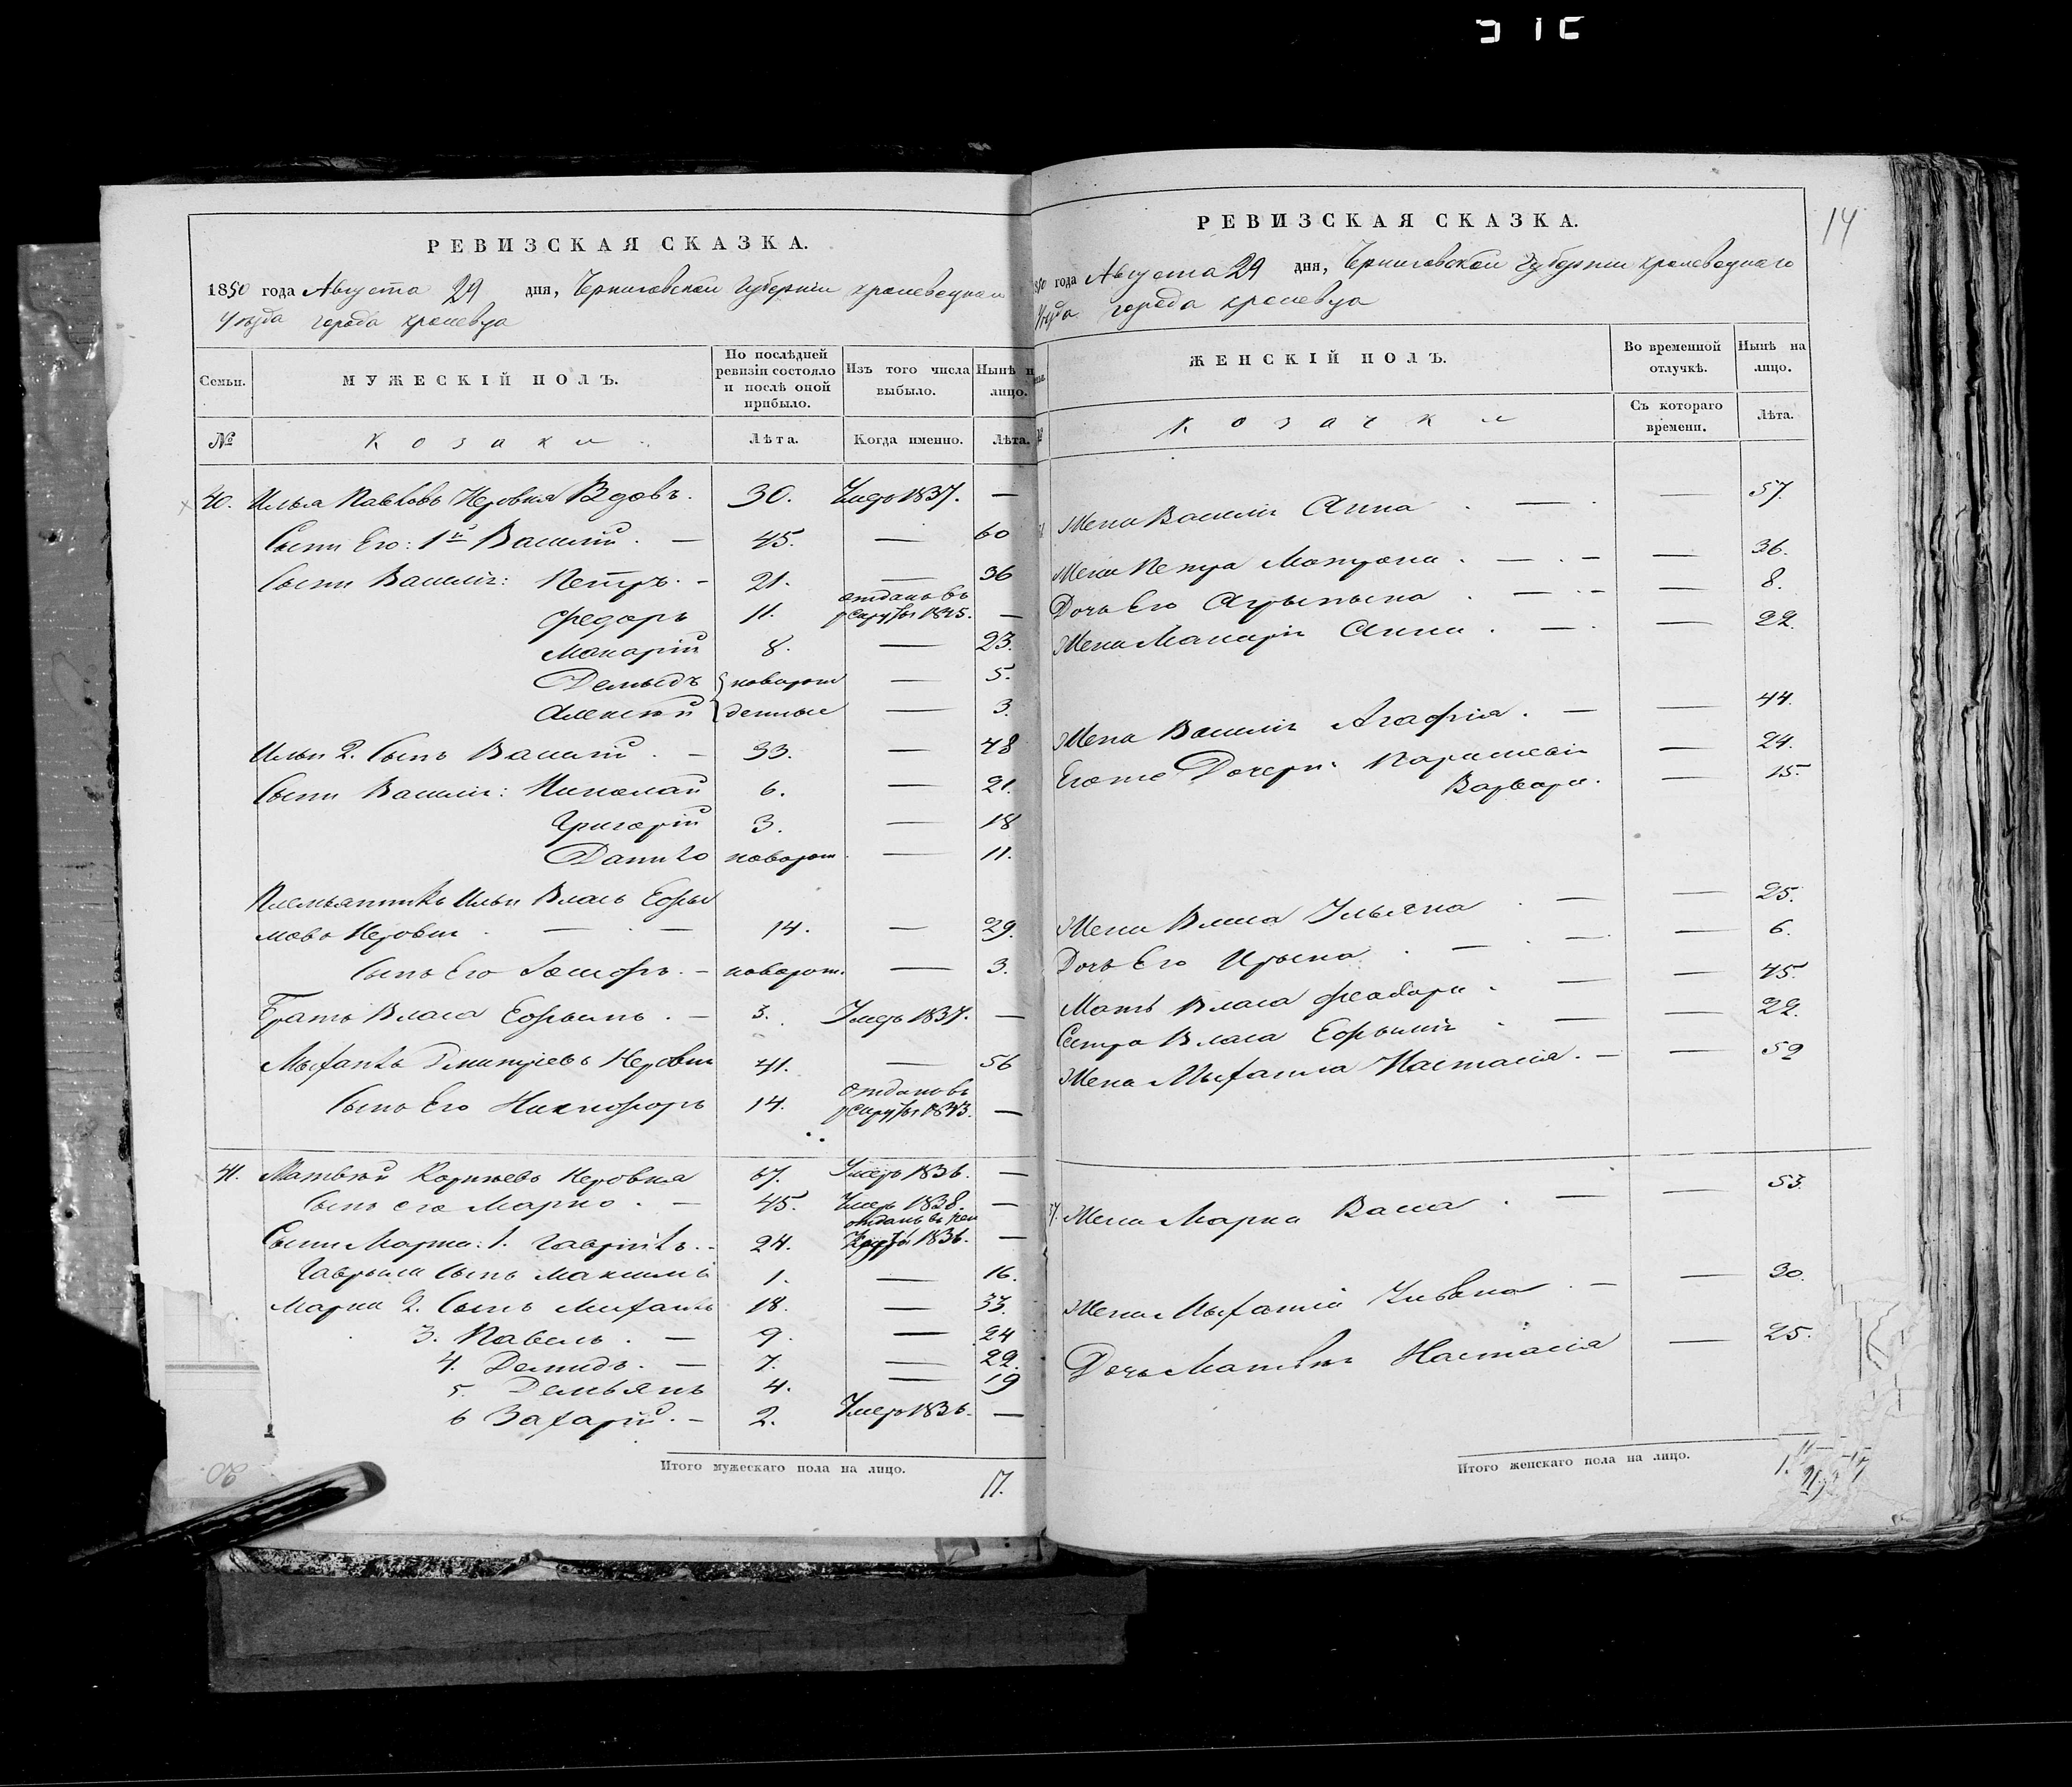 РЕВИЗСКАЯ СКАЗКА.
1850 года Августа 29 дня, Черниговской Губерніи кролевецкаго
Уѣзда города кролевца
Семьи. МУЖЕСКІЙ ПОЛЪ. По послѣдней ревизіи состояло и послѣ оной прибыло. Изъ того числа выбыло. Нынѣ на лицо.
№ Козаки. Лѣта. Когда именно. Лѣта.
40. Илья Павловъ 30. Умеръ 1837. —
Сыни Его: 1й Василий. — 45. — 60
Сыни Василія: Петръ. — 21. — 36
Федоръ 11. отданъ въ рекруты 1845. —
Макарій 8. — 23.
Демидъ новорож — 5.
Алексѣй денные — 3.
Ильи 2. Сынъ Василій. — 33. — 48
Сыни Василія: Николай 6. — 21.
Григорій 3. — 18
Данило новорож. — 11.
Племянникъ Ильи Власъ Ефры
мовъ 14. — 29.
Сынъ Его — новорож. — 3.
Братъ Власа Ефрымъ. — 3. Умеръ 1837. —
Мыхаилъ Дмитріевъ 41. — 56
Сынъ Его Никифоръ 14. отданъ въ рекруты 1843. —
41. Матвѣй Корнѣевъ 67. Умеръ 1836. —
Сынъ его Марко. — 45. Умеръ 1838. —
Сыни Марка: 1. Гаврійлъ. — 24. отданъ въ рек 1836. —
Гаврыла Сынъ Максимъ 1. — 16.
Марка 2. Сынъ Михаилъ 18. — 33.
3. Павелъ. — 9. — 24
4. Демидъ. — 7. — 22.
5. Демьянъ 4. — 19
6 Захарій. — 2. Умеръ 1836. —
Итого мужескаго пола на лицо. 17.
14
РЕВИЗСКАЯ СКАЗКА.
1850 года Августа 29 дня, Черниговской Губерніи кролевецкаго
Уѣзда города кролевца
ЖЕНСКІЙ ПОЛЪ. Во временной отлучкѣ. Нынѣ на лицо.
Козачки Съ котораго времени. Лѣта.
Жена Василія Анна. — — 57.
Жена Петра Мотрона. — — 36.
Дочь Его Агрыпына. — — 8.
Жена Макарія Анна. — — 22.
Жена Василія Агафія. — — 44.
Егоже Дочери: Парасковія — 24.
Варвара. — 15.
Жена Власа Ульяна. — — 25.
Дочь Его Ирына. — — 6.
Мать Власа Феодора. — — 45.
Сестра Власа Ефымія. — — 22.
Жена Мыхаила Настасія. — — 52
Жена Марка Васса. — — 53.
Жена Мыхаила Ульяна. — — 30.
Дочь Матвѣя Настасія — 25.
Итого женскаго пола на лицо.